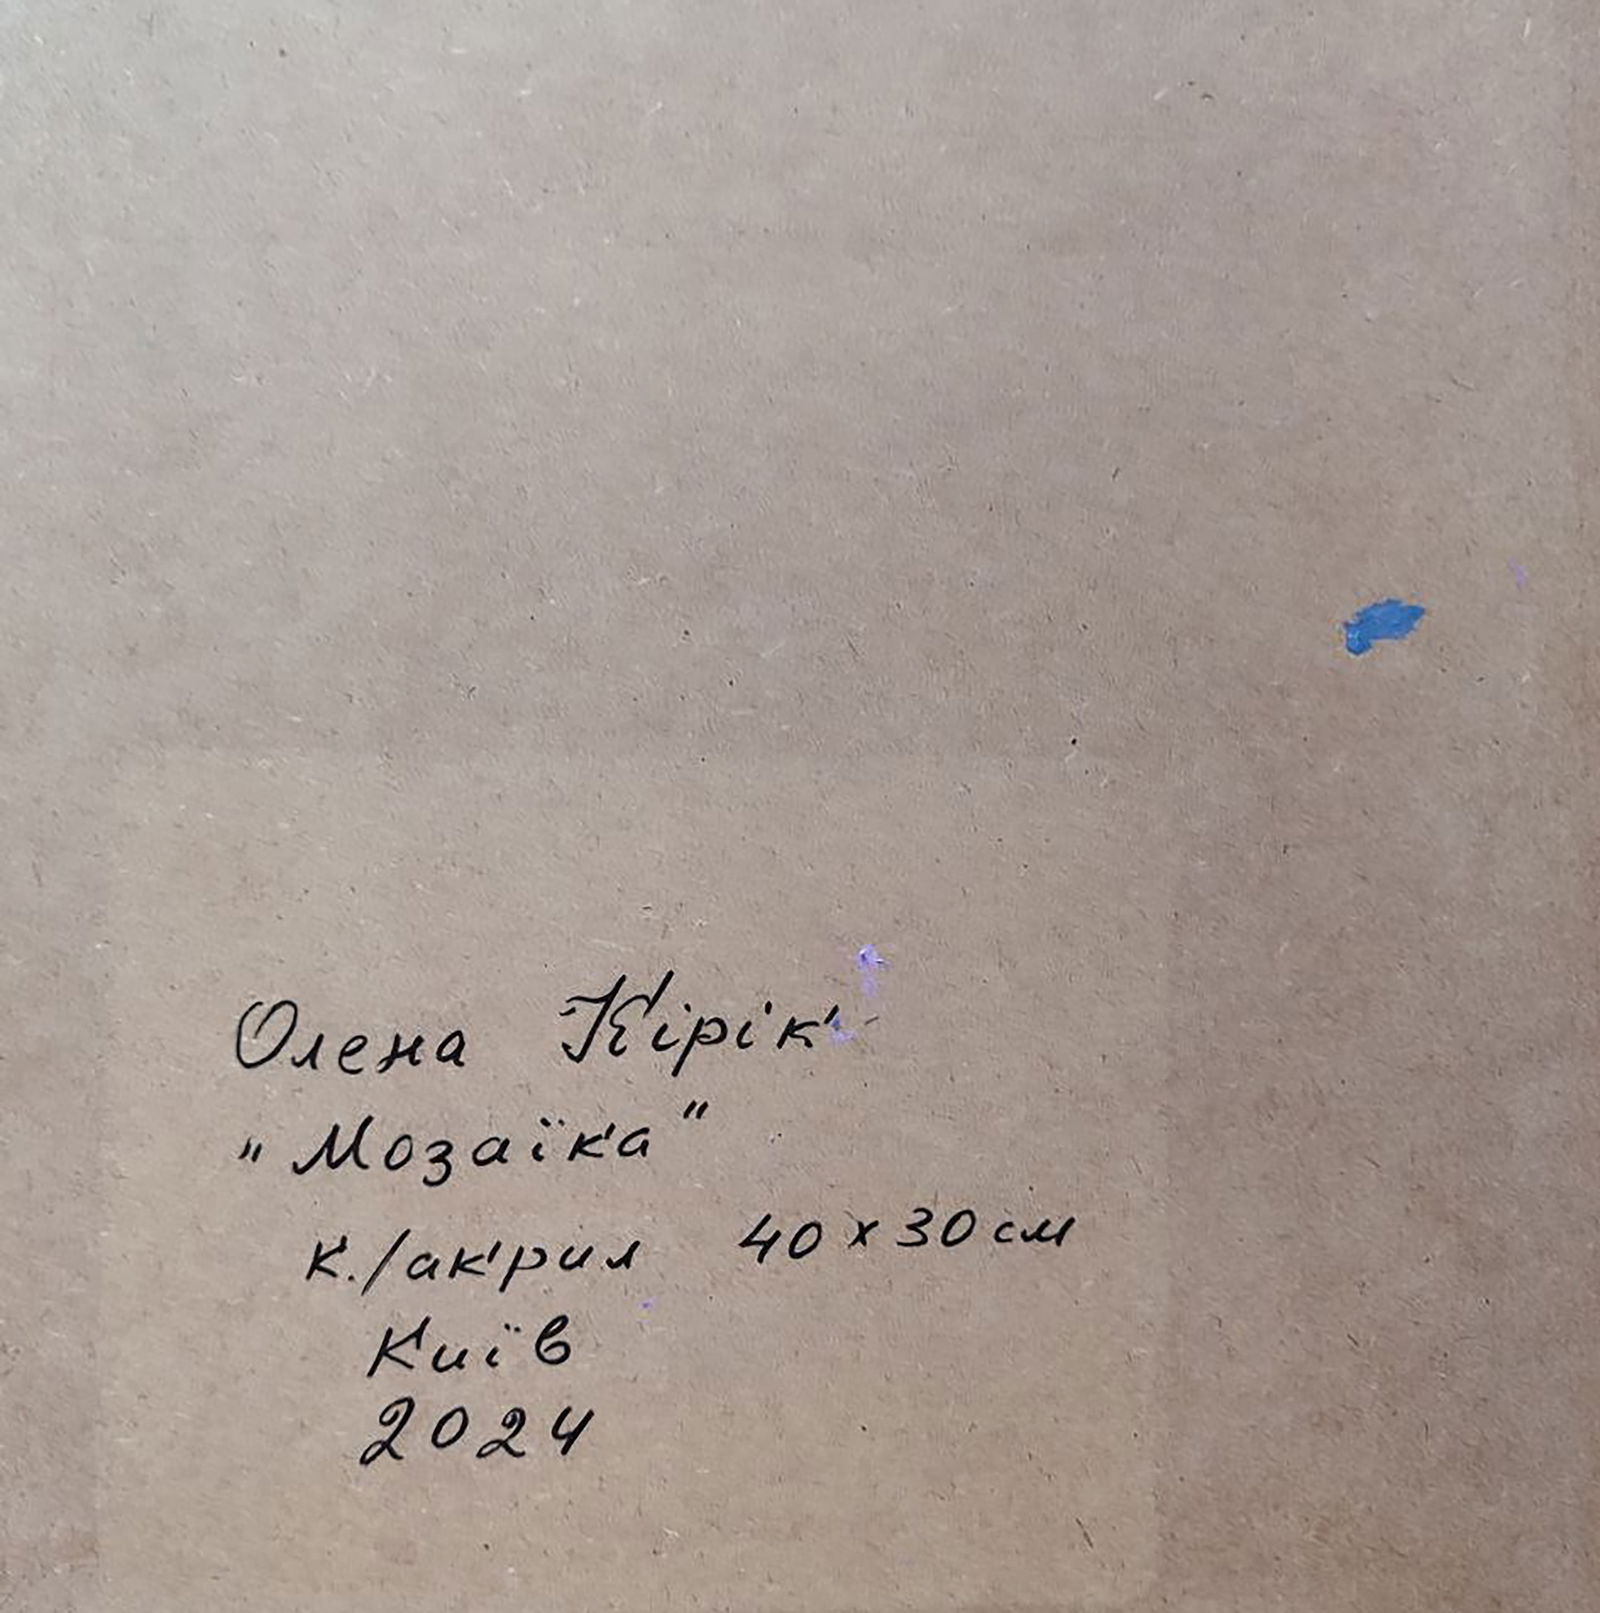 Олена Кірік
„Мозаїка"
к./акрил 40 x 30 см
Київ
2024